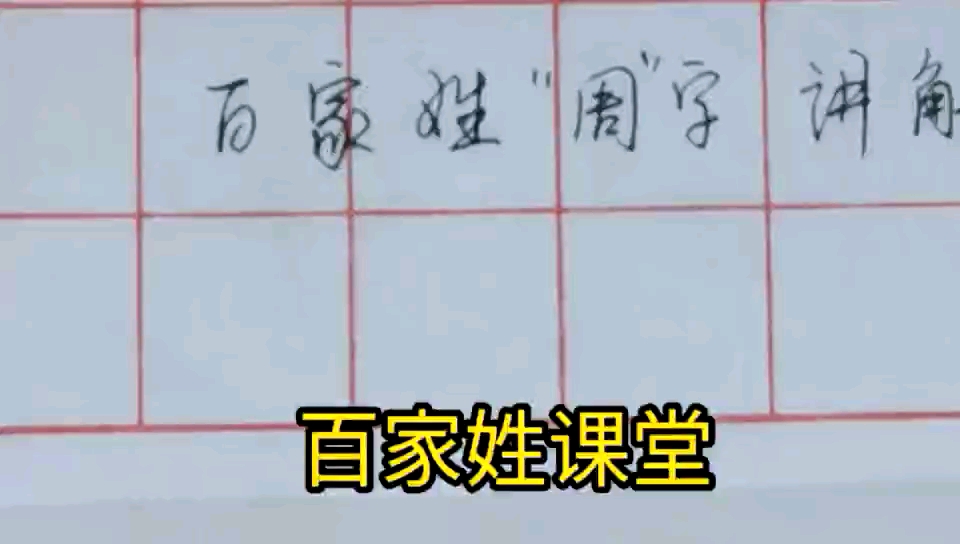 百家姓“周”字讲
百家姓课堂